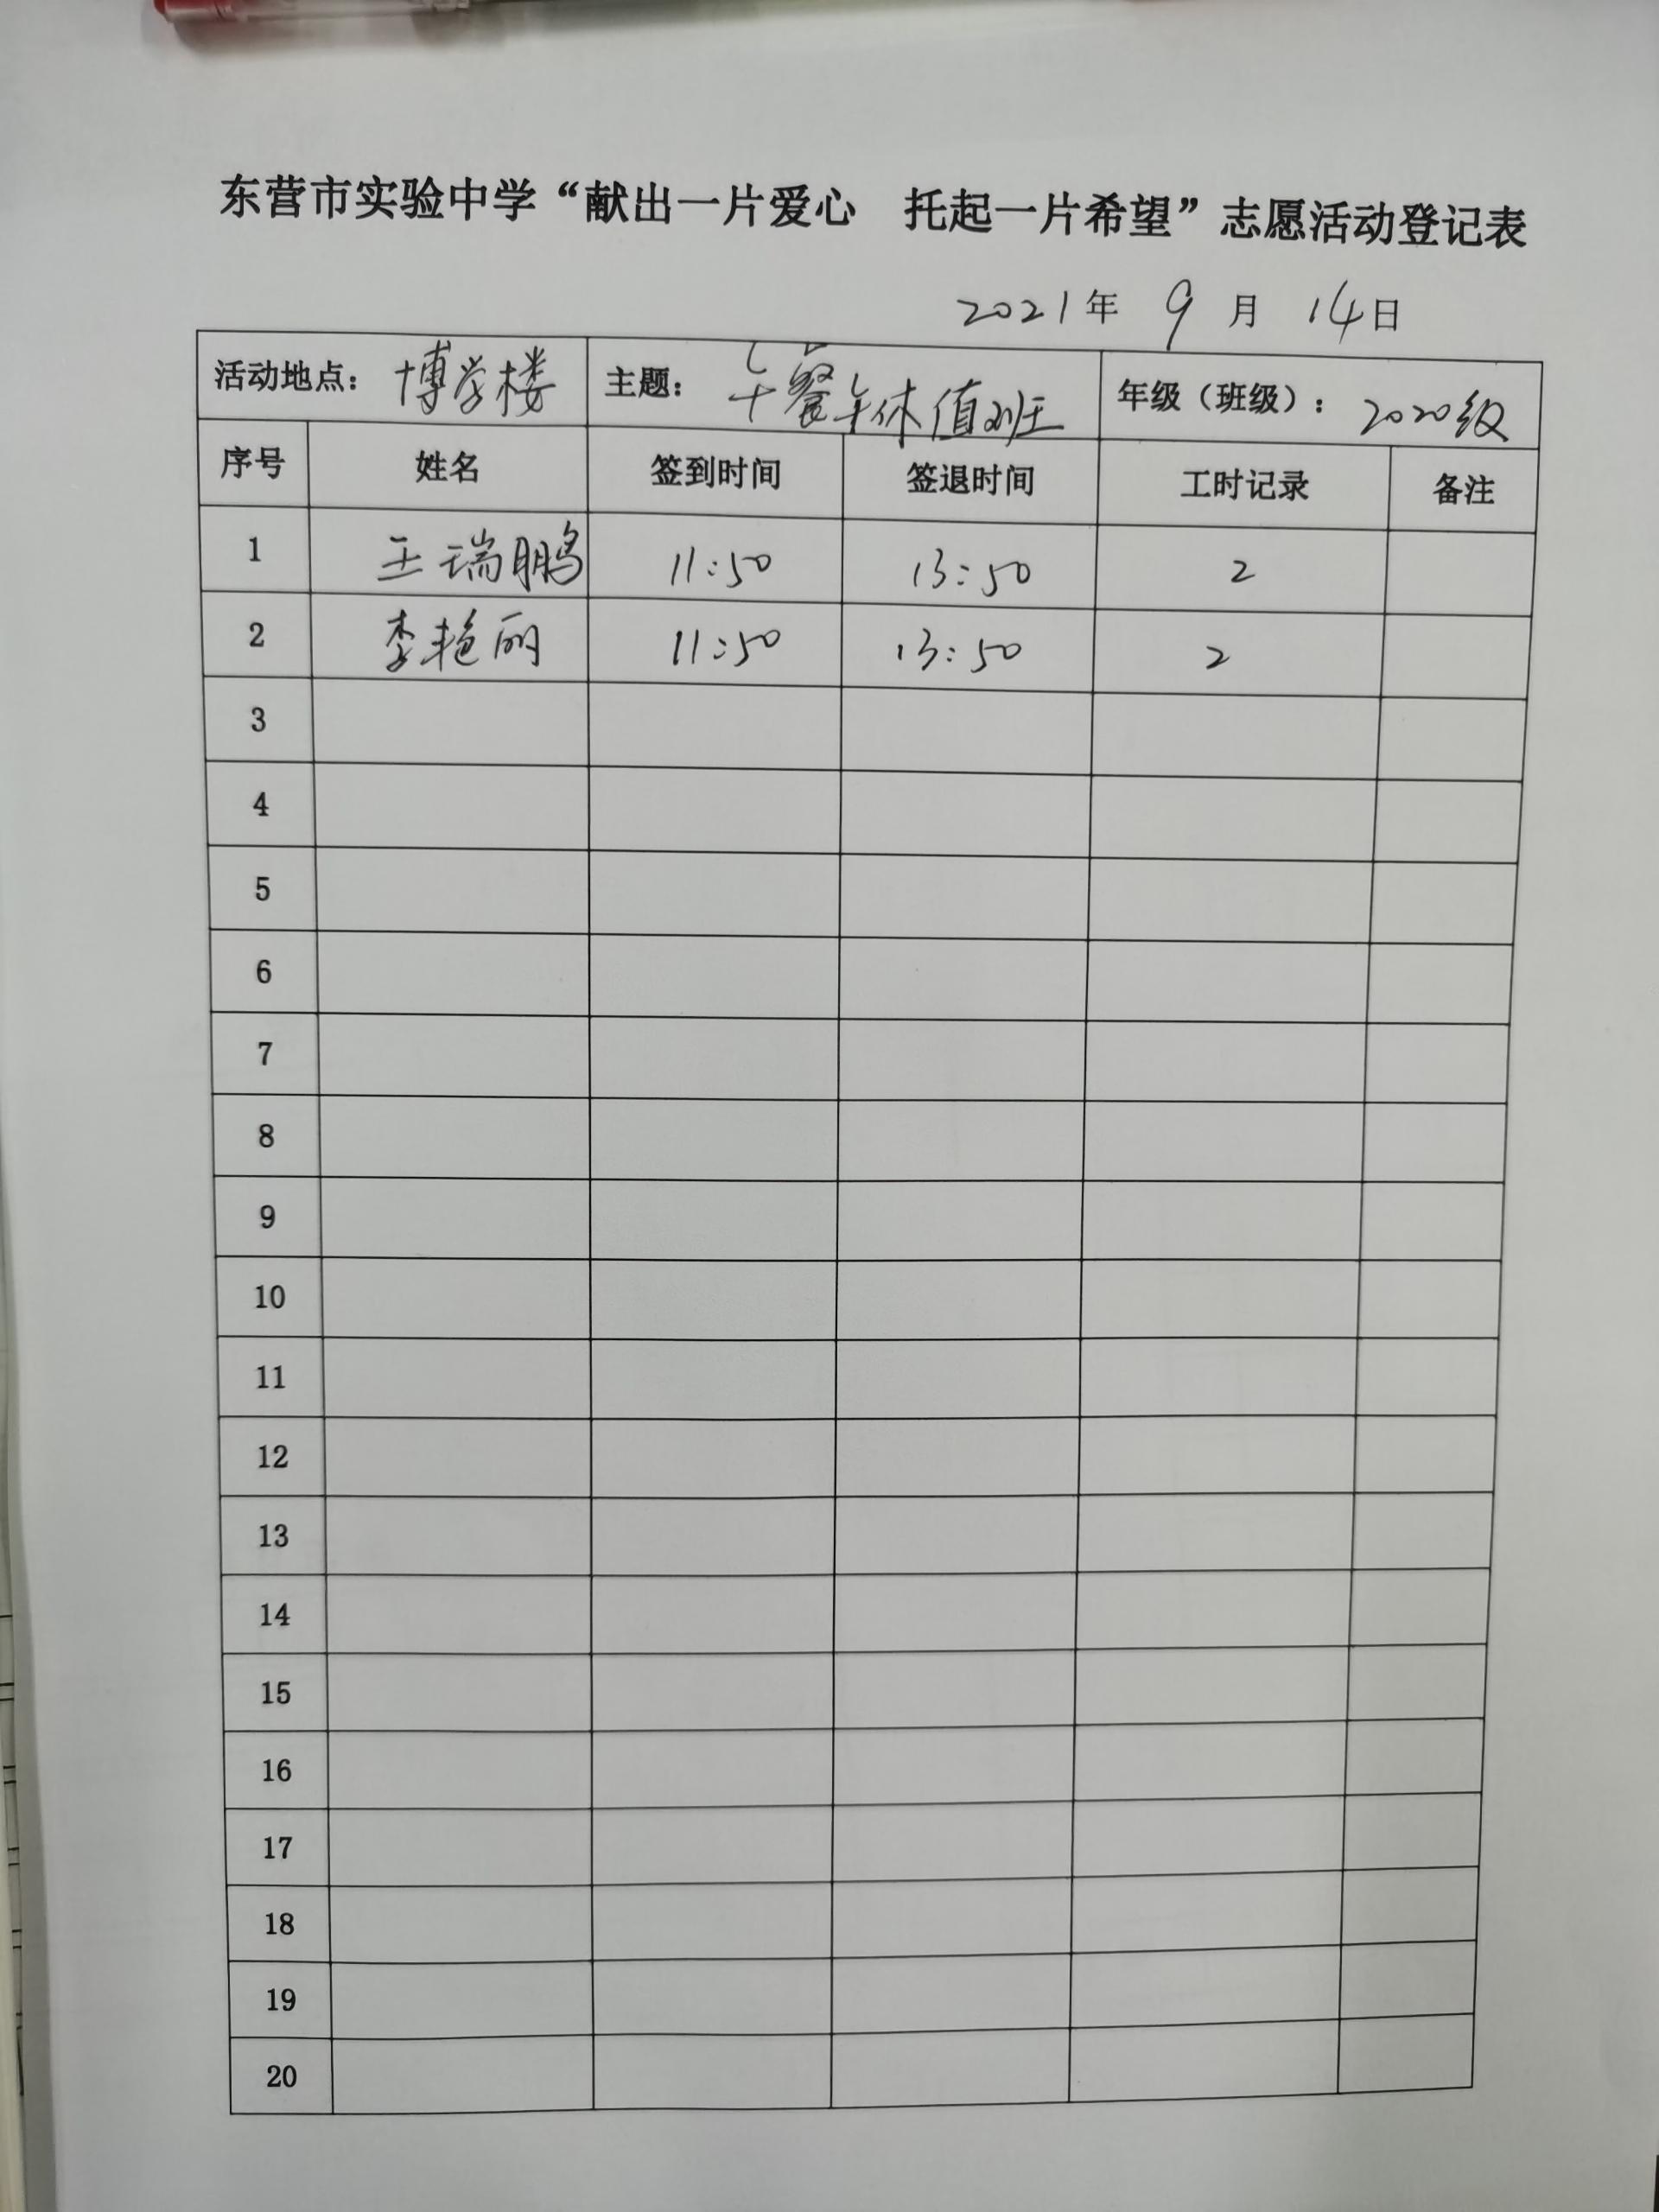 东营市实验中学“献出一片爱心 托起一片希望”志愿活动登记表
2021年 9 月 14日
活动地点: 博学楼 主题: 午餐午休值班 年级（班级）: 2020级
序号 姓名 签到时间 签退时间 工时记录 备注
1 王瑞鹏 11:50 13:50 2
2 李艳丽 11:50 13:50 2
3
4
5
6
7
8
9
10
11
12
13
14
15
16
17
18
19
20